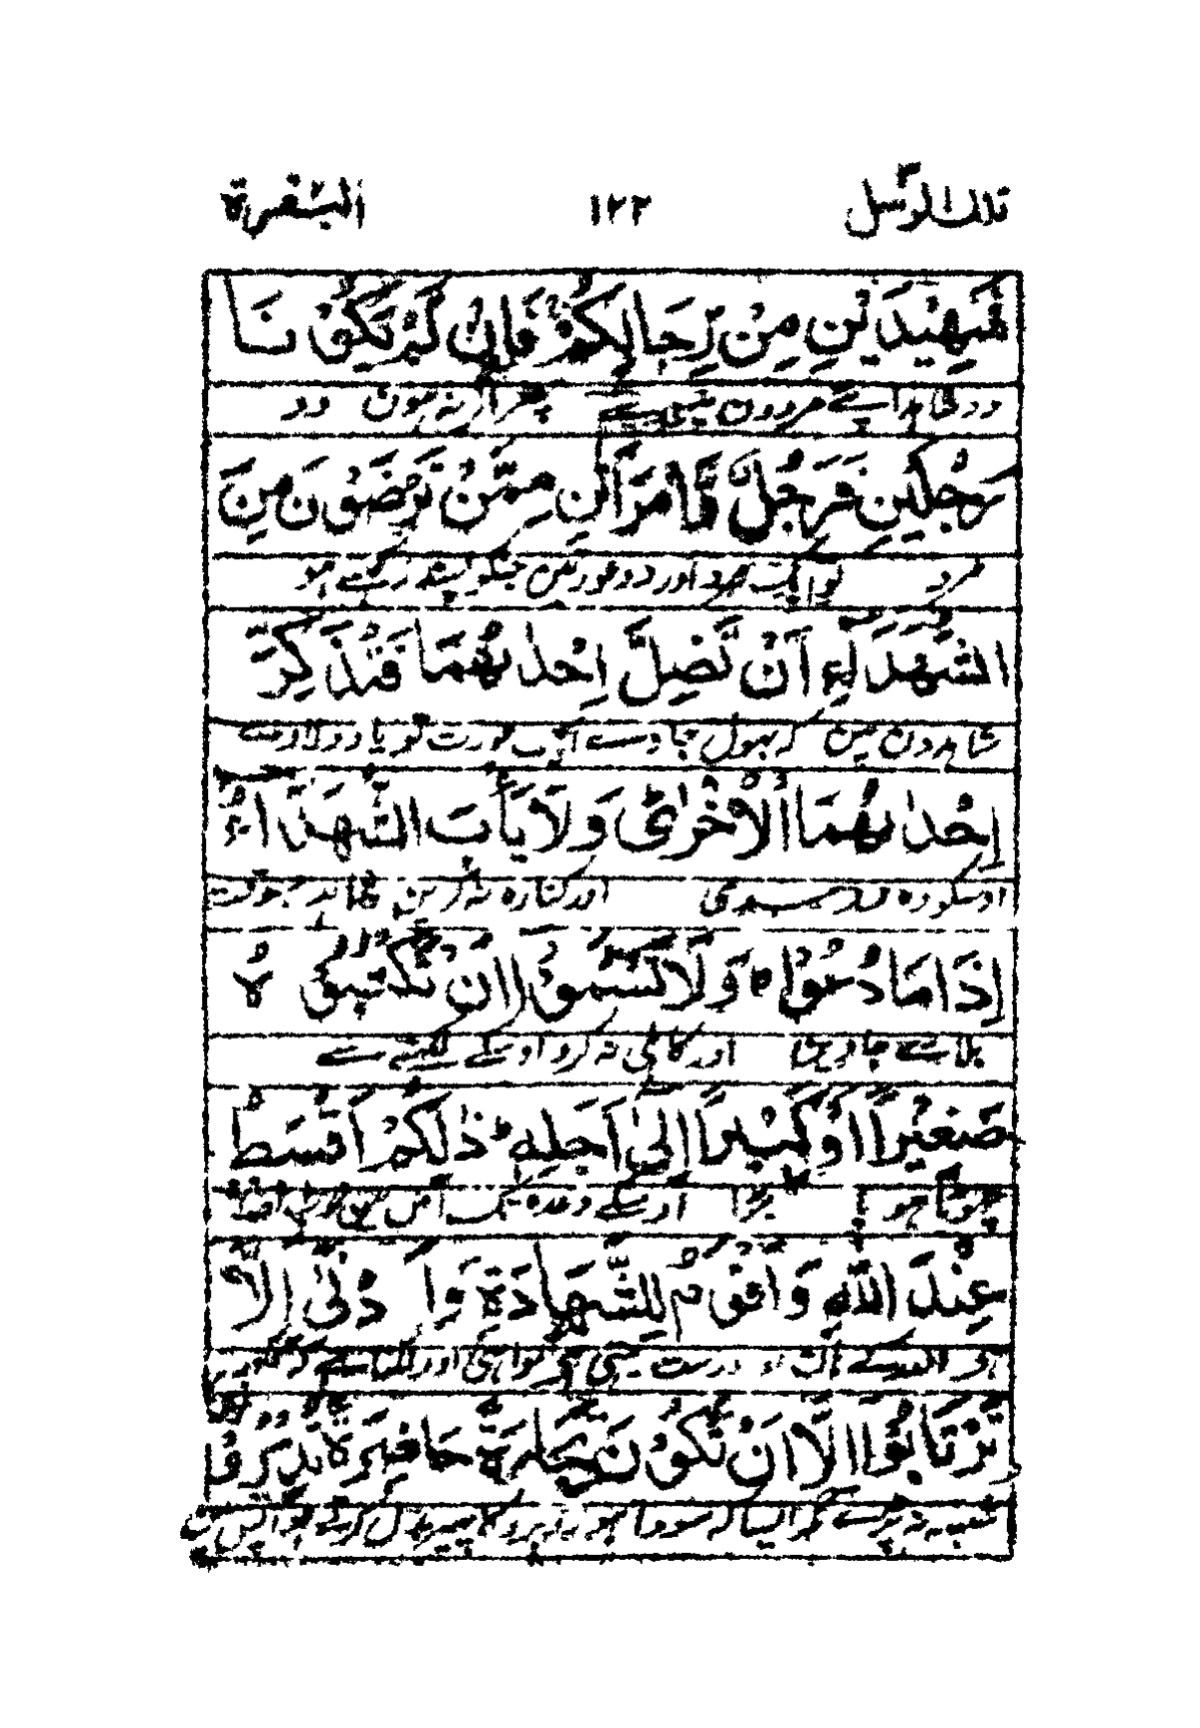 تلك الرسل ١٢٢ البقرة
شَهِيْدَيْنِ مِنْ رِّجَالِكُمْ فَاِنْ لَّمْ يَكُوْنَا
دو شاہد اپنے مردون میں سے پھر اگر نہ ہون دو
رَجُلَيْنِ فَرَجُلٌ وَّامْرَاَتٰنِ مِمَّنْ تَرْضَوْنَ مِنَ
مرد تو ایک مرد اور دو عورتیں جنکو پسند رکھتے ہو
الشُّهَدَآءِ اَنْ تَضِلَّ اِحْدٰىهُمَا فَتُذَكِّرَ
شاہدون میں کہ بھول جاوے ایک عورت تو یاد دلاوے
اِحْدٰىهُمَا الْاُخْرٰى وَلَا يَاْبَ الشُّهَدَآءُ
اوسکو وہ دوسری اور کنارہ نہ کریں شاہد جسوقت
اِذَا مَا دُعُوْا وَلَا تَسْـَٔمُوْٓا اَنْ تَكْتُبُوْهُ
بلائے جاویں اور کاہلی نہ کرو اوسکے لکھنے سے
صَغِيْرًا اَوْ كَبِيْرًا اِلٰٓى اَجَلِهٖ ذٰلِكُمْ اَقْسَطُ
چھوٹا ہو یا بڑا اوسکے وعدہ تک اس میں خوب انصاف
عِنْدَ اللّٰهِ وَاَقْوَمُ لِلشَّهَادَةِ وَاَدْنٰٓى اَلَّا
ہے اللہ کے اور درست گواہی اور لگتا ہے کہ تمکو نہ
تَرْتَابُوْٓا اِلَّآ اَنْ تَكُوْنَ تِجَارَةً حَاضِرَةً تُدِيْرُوْ
شبہ نہ پڑے مگر ایسا کہ سودا ہو